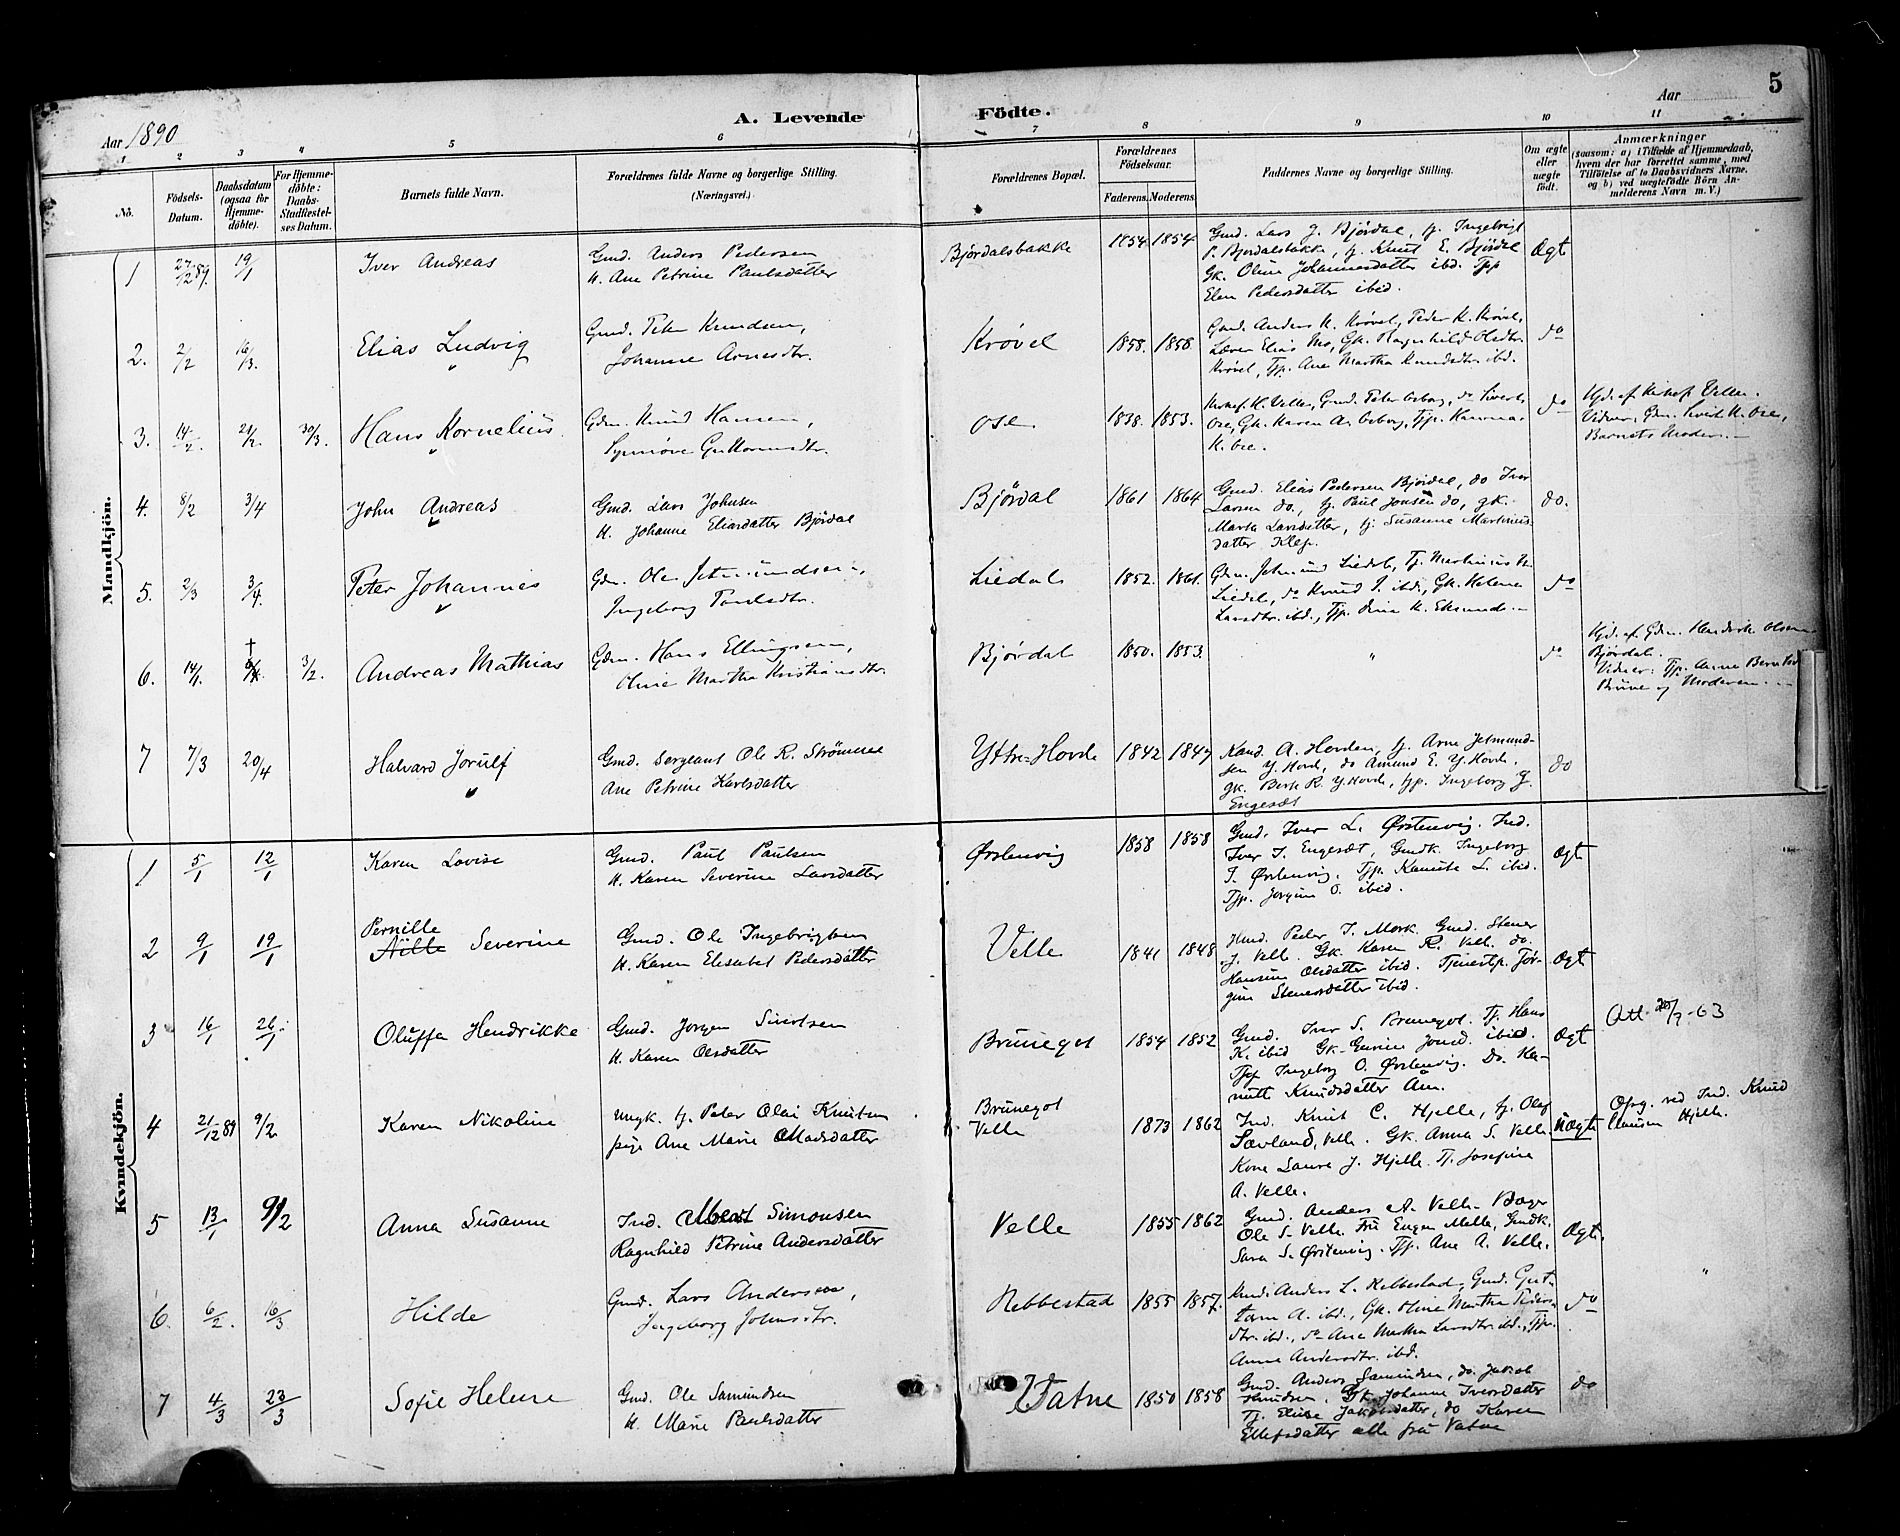 5
A. Levende Födte.
Aar 1890
Aar
1 2 3 4 5 6 7 8 9 10 11
Nö.
Födsels-Datum.
Daabsdatum (ogsaa for Hjemmedöbte).
For Hjemmedöbte: Daabs-Stadfæstelses Datum.
Barnets fulde Navn.
Forældrenes fulde Navne og borgerlige Stilling. (Næringsvei.)
Forældrenes Bopæl.
Forældrenes Födselsaar.
Faderens. Moderens.
Faddernes Navne og borgerlige Stilling.
Om ægte eller uægte födt.
Anmærkninger
(saasom: a) i Tilfælde af Hjemmedaab, hvem der har forrettet samme, med Tilföielse af to Daabsvidners Navne, og b) ved uægtefödte Börn Anmelderens Navn m. V.)
Mandkjön.
1 27/12 89. 19/1 Iver Andreas
Gmd. Anders Pedersen
H. Ane Petrine Paulsdatter
Bjørdalsbakke 1854 1854
Gmd. Lars J. Bjørdal, tj. Ingebrigt
P. Bjørdalsbakk, tj. Knut E. Bjørdal
Gk. Oline Johannesdatter ibd. Tpp
Elen Pedersdatter ibid.
Ægt
2. 2/2 16/3. Elias Ludvig
Gmd. Peter Knudsen,
Johanne Arnesdtr.
Krøvel 1858. 1858
Gmd. Anders K. Krøvel, Peder K. Krøvel,
Lærer Elias Mo, Gk. Ragnhild Olsdtr.
Krøvel, Tjp. Ane Martha Knudsdtr. ibd.
do
3. 14/2. 21/2. 30/3. Hans Kornelius
Gdm. Knud Hansen,
Synnøve Guttormsdtr.
Ose 1838. 1853.
Hjd. af Kirkes. Velle.
Barnets Moder.
do
4. 8/2 3/4 John Andreas
Gmd. Lars Johnsen
H. Johanne Eliasdatter Bjørdal
Bjørdal 1861 1864
Gmd. Elias Pedersen Bjørdal, do Iver
Larsen do., tj. Paul Jonsen do, gk.
Marte Larsdatter, tj. Susanne Martinus
datter Klep.
do.
5. 2/3 3/4. Peter Johannes
Gdm. Ole Jetmundsen,
Ingeborg Paulsdtr.
Liedal 1852. 1861.
do
6. 14/1. 3/2. Andreas Mathias
Gdm. Hans Ellingsen,
Oline Martha Kristiansdtr.
Bjørdal 1850. 1853. " do
Hjd. af Gdm. Hendrik Olsen
Bjørdal.
Vidner: Tjp. Anne Berntsd
Brune og Moderen.
7 7/3 20/4 Halvard Jorulf
Gmd. Sergeant Ole R. Strømme
Ane Petrine Karlsdatter
Yttre-Hovde 1842 1847
Kand. A. Hovden, tj. Arne Jetmund-
sen Y. Hovd, do Amund E. Y. Hovd.
gk. Berte R. Y. Hovde, tjp. Ingeborg G.
Engeset
do
Kvindekjön.
1 5/1 12/1 Karen Lovise
Gmd. Paul Paulsen
H. Karen Severine Larsdatter
Ørstenvig 1858 1858
Gmd. Iver L. Ørstenvig. Ind.
Iver I. Engesæt, Gmdk. Ingeborg
T. Ørstenvig. Tjp. Kanute L. ibid.
Tjp. Jørgine O. ibid.
Ægt
2 9/1 19/1 Pernille Nille Severine
Gmd. Ole Ingebrigtsen
H. Karen Elisabet Pedersdatter
Velle 1841 1848
Hmd. Peder I. Mork. Gmd. Stener
J. Velle. Gk. Karen R. Vell. do.
Hansine Olsdatter ibid. Tjenestp. Jør-
gine Stenersdatter ibid.
Ægt
3 16/1 26/1 Oluffa Hendrikke
Gmd. Jørgen Sivertsen
H. Karen Olsdatter
Brunegot 1854 1852
Gmd. Iver S. Brunegot. Tj. Hans
K. ibid Gk. Gurine Jonsd. ibid.
Tjp Ingeborg O. Ørstenvig. Do. Ka-
nutte Knudsdatter Aam.
Ægt
Att. 20/7-63
4 21/12 89 9/2 Karen Nikoline
Ungk. tj. Peter Olai Knutsen
pige Ane Marie Madsdatter
Brunegot
Velle
1873 1862
Ind. Knut C. Hjelle, tj. Olaf
Sævland, Velle. Gk. Anna S. Velle.
Kone Laura J. Hjelle. Tj. Josefine
A. Velle.
Uægte
Opg. ved Ind. Knud
Clausen Hjelle.
5 13/1 9/2 Anna Susanne
Ind. Albert Simonsen
Ragnhild Petrine Andersdatter
Velle 1855 1862
Gmd. Anders A. Velle. Bager
Ole S. Velle. Fru Eugen Melle, Gmdk.
Sara S. Ørstenvig. Tjp. Ane A. Velle.
Ægt.
6. 6/2. 16/3 Hilde
Gmd. Lars Andersen,
Ingeborg Johnsdtr.
Nebbestad 1855 1857.
Gmd. Anders L. Nebbestad, Gmd. Gut-
torm A. ibd., Gk. Oline Martha Peders-
dtr. ibd., do Ane Martha Larsdtr. ibd., Tjp.
Anne Andersdtr. ibd.
do
"
7 4/3 23/3 Sofie Helene
Gmd. Ole Samundsen
H. Marie Paulsdatter
Vatne 1850 1858
Gmd. Anders Samundsen, do. Jakob
Knudsen, Gk. Johanne Iversdatter
Tj. Elise Jakobsdatter, do Karen
Ellefsdatter alle fra Vatne
do